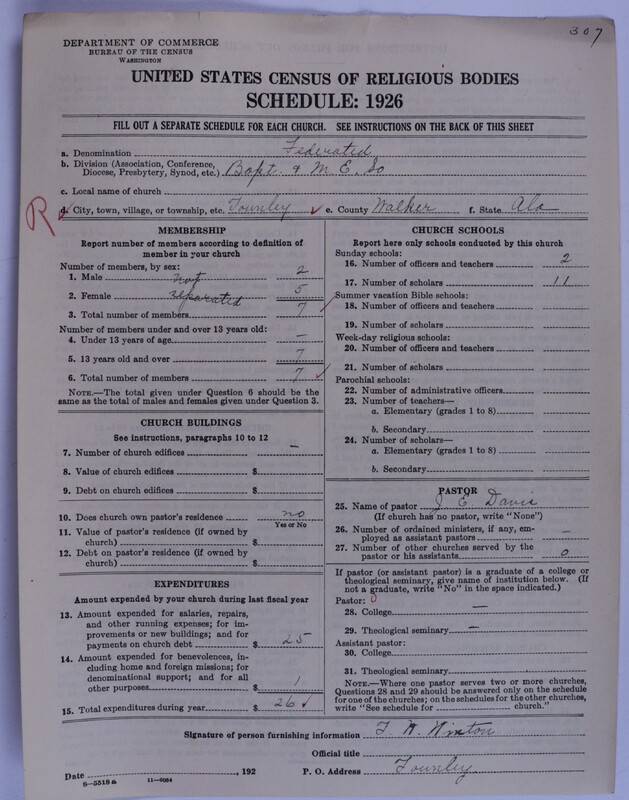 307
DEPARTMENT OF COMMERCE
BUREAU OF THE CENSUS
WASHINGTON
UNITED STATES CENSUS OF RELIGIOUS BODIES
SCHEDULE: 1926
FILL OUT A SEPARATE SCHEDULE FOR EACH CHURCH. SEE INSTRUCTIONS ON THE BACK OF THIS SHEET
a. Denomination Federated
b. Division (Association, Conference, Diocese, Presbytery, Synod, etc.) Bapt. & M. E. So
c. Local name of church
R
d. City, town, village, or township, etc. Townley e. County Walker f. State Ala
MEMBERSHIP
Report number of members according to definition of
member in your church
Number of members, by sex:
1. Male not 2
2. Female separated 5
3. Total number of members 7
Number of members under and over 13 years old:
4. Under 13 years of age —
5. 13 years old and over 7
6. Total number of members 7
NOTE.—The total given under Question 6 should be
same as the total of males and females given under Question 3.
CHURCH BUILDINGS
See instructions, paragraphs 10 to 12
7. Number of church edifices —
8. Value of church edifices $
9. Debt on church edifices $
10. Does church own pastor's residence no
Yes or No
11. Value of pastor's residence (if owned by
church) $
12. Debt on pastor's residence (if owned by
church) $
EXPENDITURES
Amount expended by your church during last fiscal year
13. Amount expended for salaries, repairs,
and other running expenses; for im-
provements or new buildings; and for
payments on church debt $ 25
14. Amount expended for benevolences, in-
cluding home and foreign missions; for
denominational support; and for all
other purposes $ 1
15. Total expenditures during year $ 26
CHURCH SCHOOLS
Report here only schools conducted by this church
Sunday schools:
16. Number of officers and teachers 2
17. Number of scholars 11
Summer vacation Bible schools:
18. Number of officers and teachers
19. Number of scholars
Week-day religious schools:
20. Number of officers and teachers
21. Number of scholars
Parochial schools:
22. Number of administrative officers
23. Number of teachers—
a. Elementary (grades 1 to 8)
b. Secondary
24. Number of scholars—
a. Elementary (grades 1 to 8)
b. Secondary
PASTOR
25. Name of pastor J E Davis
(If church has no pastor, write "None")
26. Number of ordained ministers, if any, em-
ployed as assistant pastors —
27. Number of other churches served by the
pastor or his assistants 0
If pastor (or assistant pastor) is a graduate of a college or
theological seminary, give name of institution below. (If
not a graduate, write "No" in the space indicated.)
Pastor: 0
28. College —
29. Theological seminary —
Assistant pastor:
30. College
31. Theological seminary
NOTE.—Where one pastor serves two or more churches,
Questions 28 and 29 should be answered only on the schedule
for one of the churches; on the schedules for the other churches,
write "See schedule for church."
Signature of person furnishing information
Official title
Date , 192 P. O. Address Townley
8—5518 a 11—6084